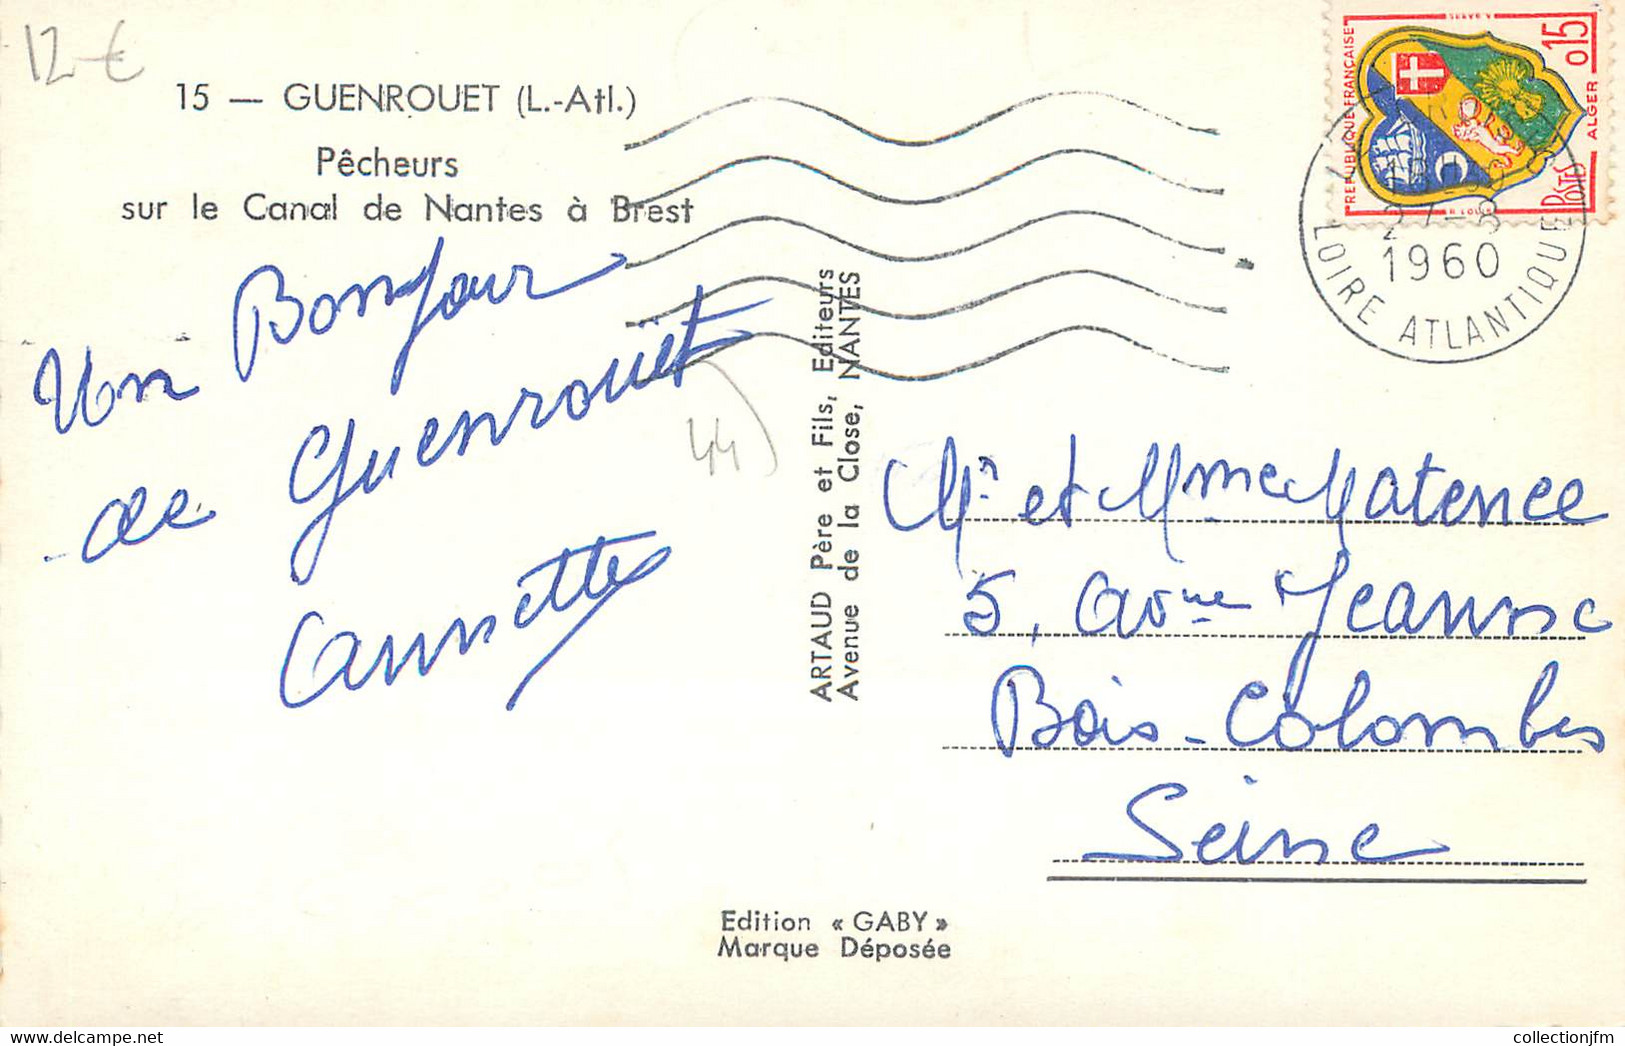 12 €
15 — GUENROUET (L.-Atl.)
Pêcheurs
sur le Canal de Nantes à Brest
Un Bonjour
de Guenrouët
Annette
44
ARTAUD Père et Fils, Editeurs
Avenue de la Close, NANTES
REPUBLIQUE FRANÇAISE
0,15
ALGER
POSTES
1960
LOIRE ATLANTIQUE
Mr et Mme Matence
5, avnue Jeanne
Bois-Colombes
Seine
Edition « GABY »
Marque Déposée
collectionjfm